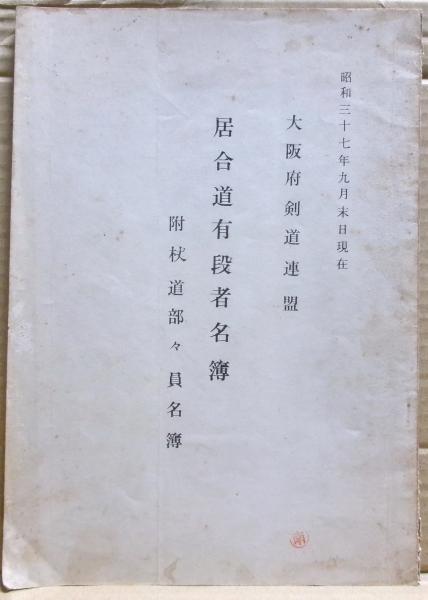 昭和三十七年九月末日現在
大阪府剣道連盟
居合道有段者名簿
附杖道部々員名簿